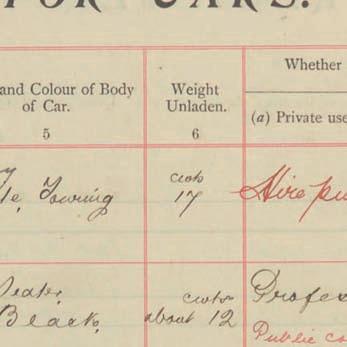 FOR CARS.
and Colour of Body
of Car.
5
Weight
Unladen.
6
Whether
(a) Private use
Touring
cwts
17
Hire pu
cwts
about 12
Black,
Profes
Public co